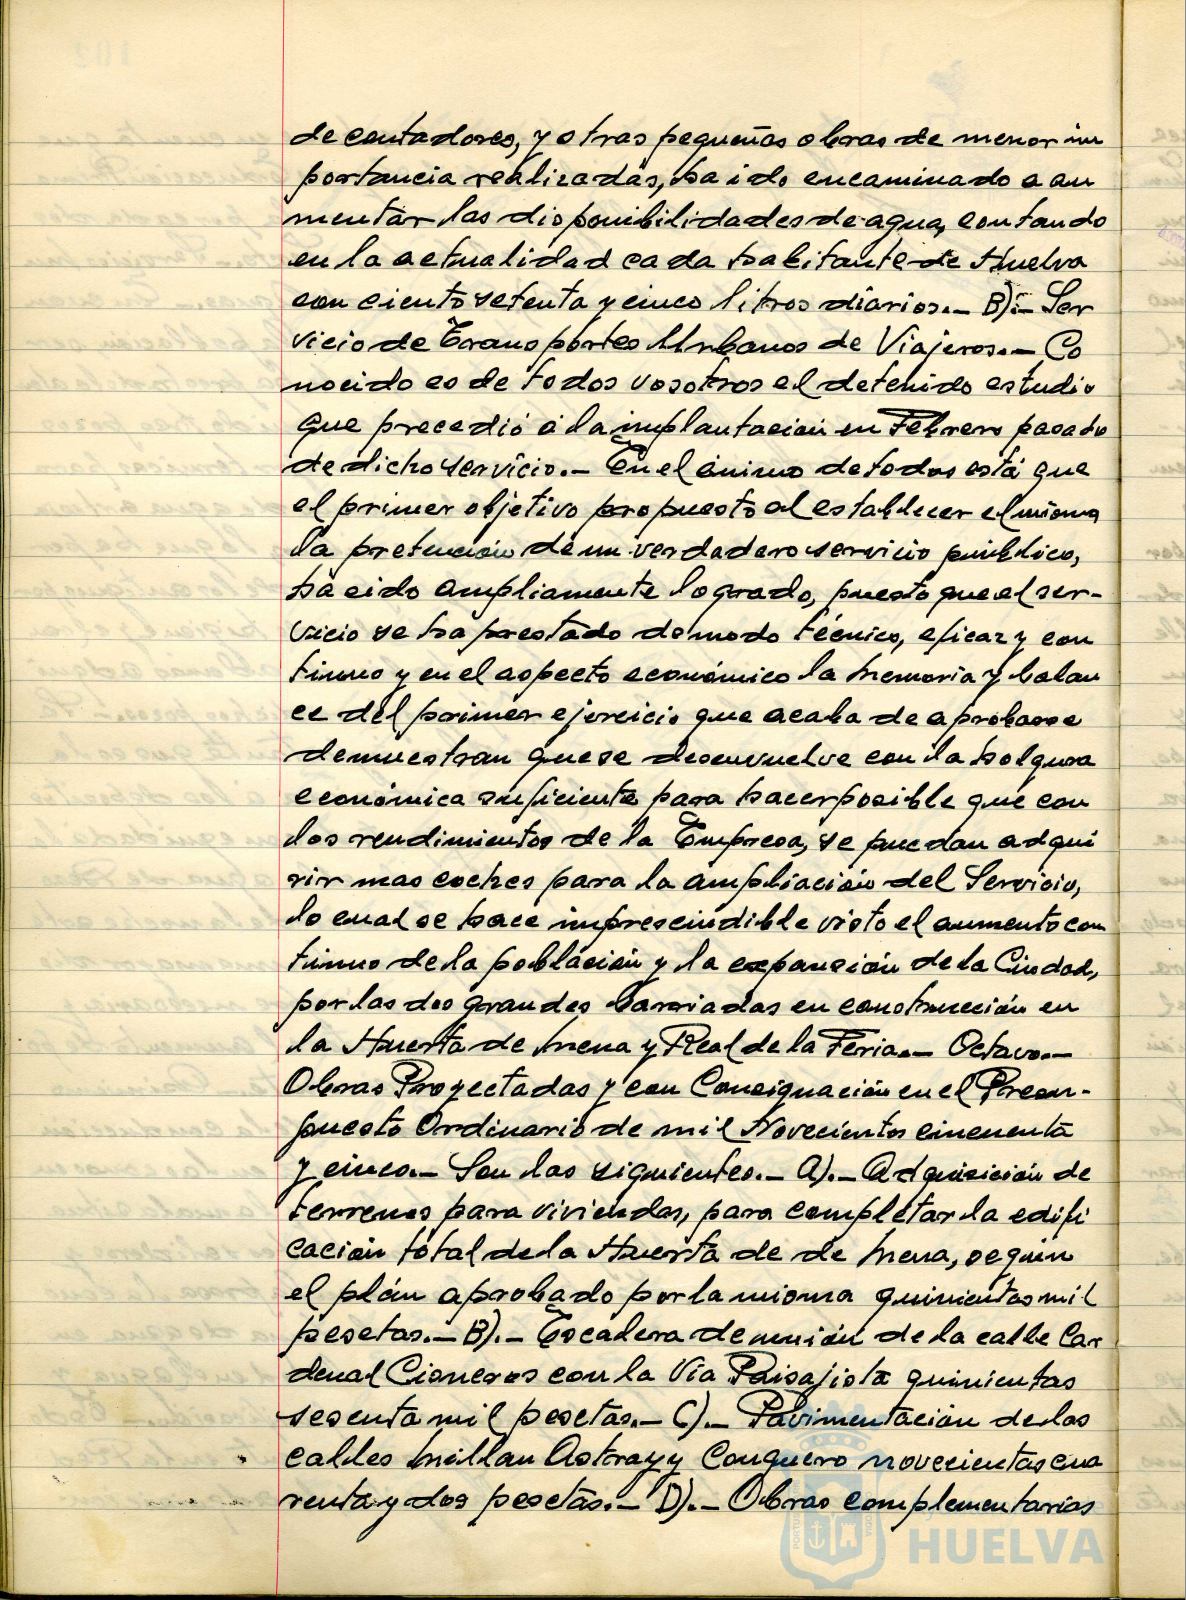 de contadores, y otras pequeñas obras de menor im
portancia realizadas, ha ido encaminado a au
mentar las disponibilidades de agua, contando
en la actualidad cada habitante de Huelva
con ciento setenta y cinco litros diarios.- B).- Ser
vicio de Transportes Urbanos de Viajeros.- Co
nocido es de todos vosotros el detenido estudio
que precedió a la implantación en Febrero pasado
de dicho servicio.- En el ánimo de todos está que
el primer objetivo propuesto al establecer el mismo
la pretención de un verdadero servicio público,
ha sido ampliamente logrado, puesto que el ser-
vicio se ha prestado de modo técnico, eficaz y con
tinuo y en el aspecto económico la Memoria y balan
ce del primer ejercicio que acaba de aprobarse
demuestran que se desenvuelve con la holgura
económica suficiente para hacer posible que con
los rendimientos de la Empresa, se puedan adqui
rir mas coches para la ampliación del Servicio,
lo cual se hace imprescindible visto el aumento con
tinuo de la población y la expansión de la Ciudad,
por las dos grandes barriadas en construcción en
la Huerta de Mena y Real de la Feria.- Octavo.-
Obras Proyectadas y con Consignación en el Presu-
puesto Ordinario de mil Novecientos cincuenta
y cinco.- Son las siguientes.- A).- Adquisición de
terrenos para viviendas, para completar la edifi
cación total de la Huerta de de Mena, según
el plán aprobado por la misma quinientas mil
pesetas.- B).- Escalera de unión de la calle Car
denal Cisneros con la Via Paisajista quinientas
sesenta mil pesetas.- C).- Pavimentación de las
calles Millan Astray y Conquero novecientas cua
renta y dos pesetas.- D).- Obras complementarias
HUELVA